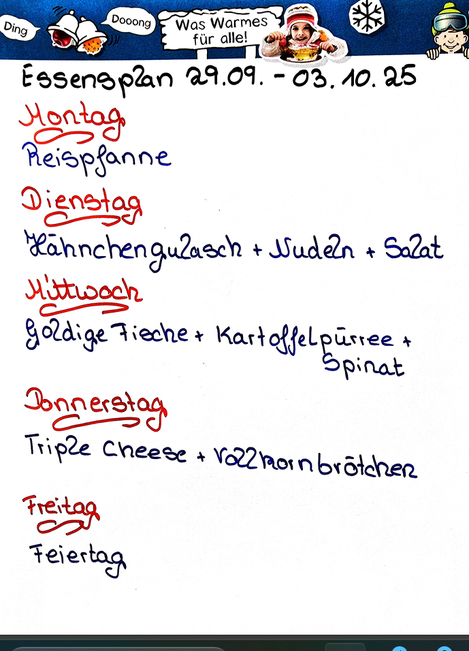 Ding
Dooong
Was Warmes
für alle!
Essensplan 29.09. - 03.10.25
Montag
Reispfanne
Dienstag
Hähnchengulasch + Nudeln + Salat
Mittwoch
Goldige Fische + Kartoffelpürree +
Spinat
Donnerstag
Triple Cheese + Vollkornbrötchen
Freitag
Feiertag